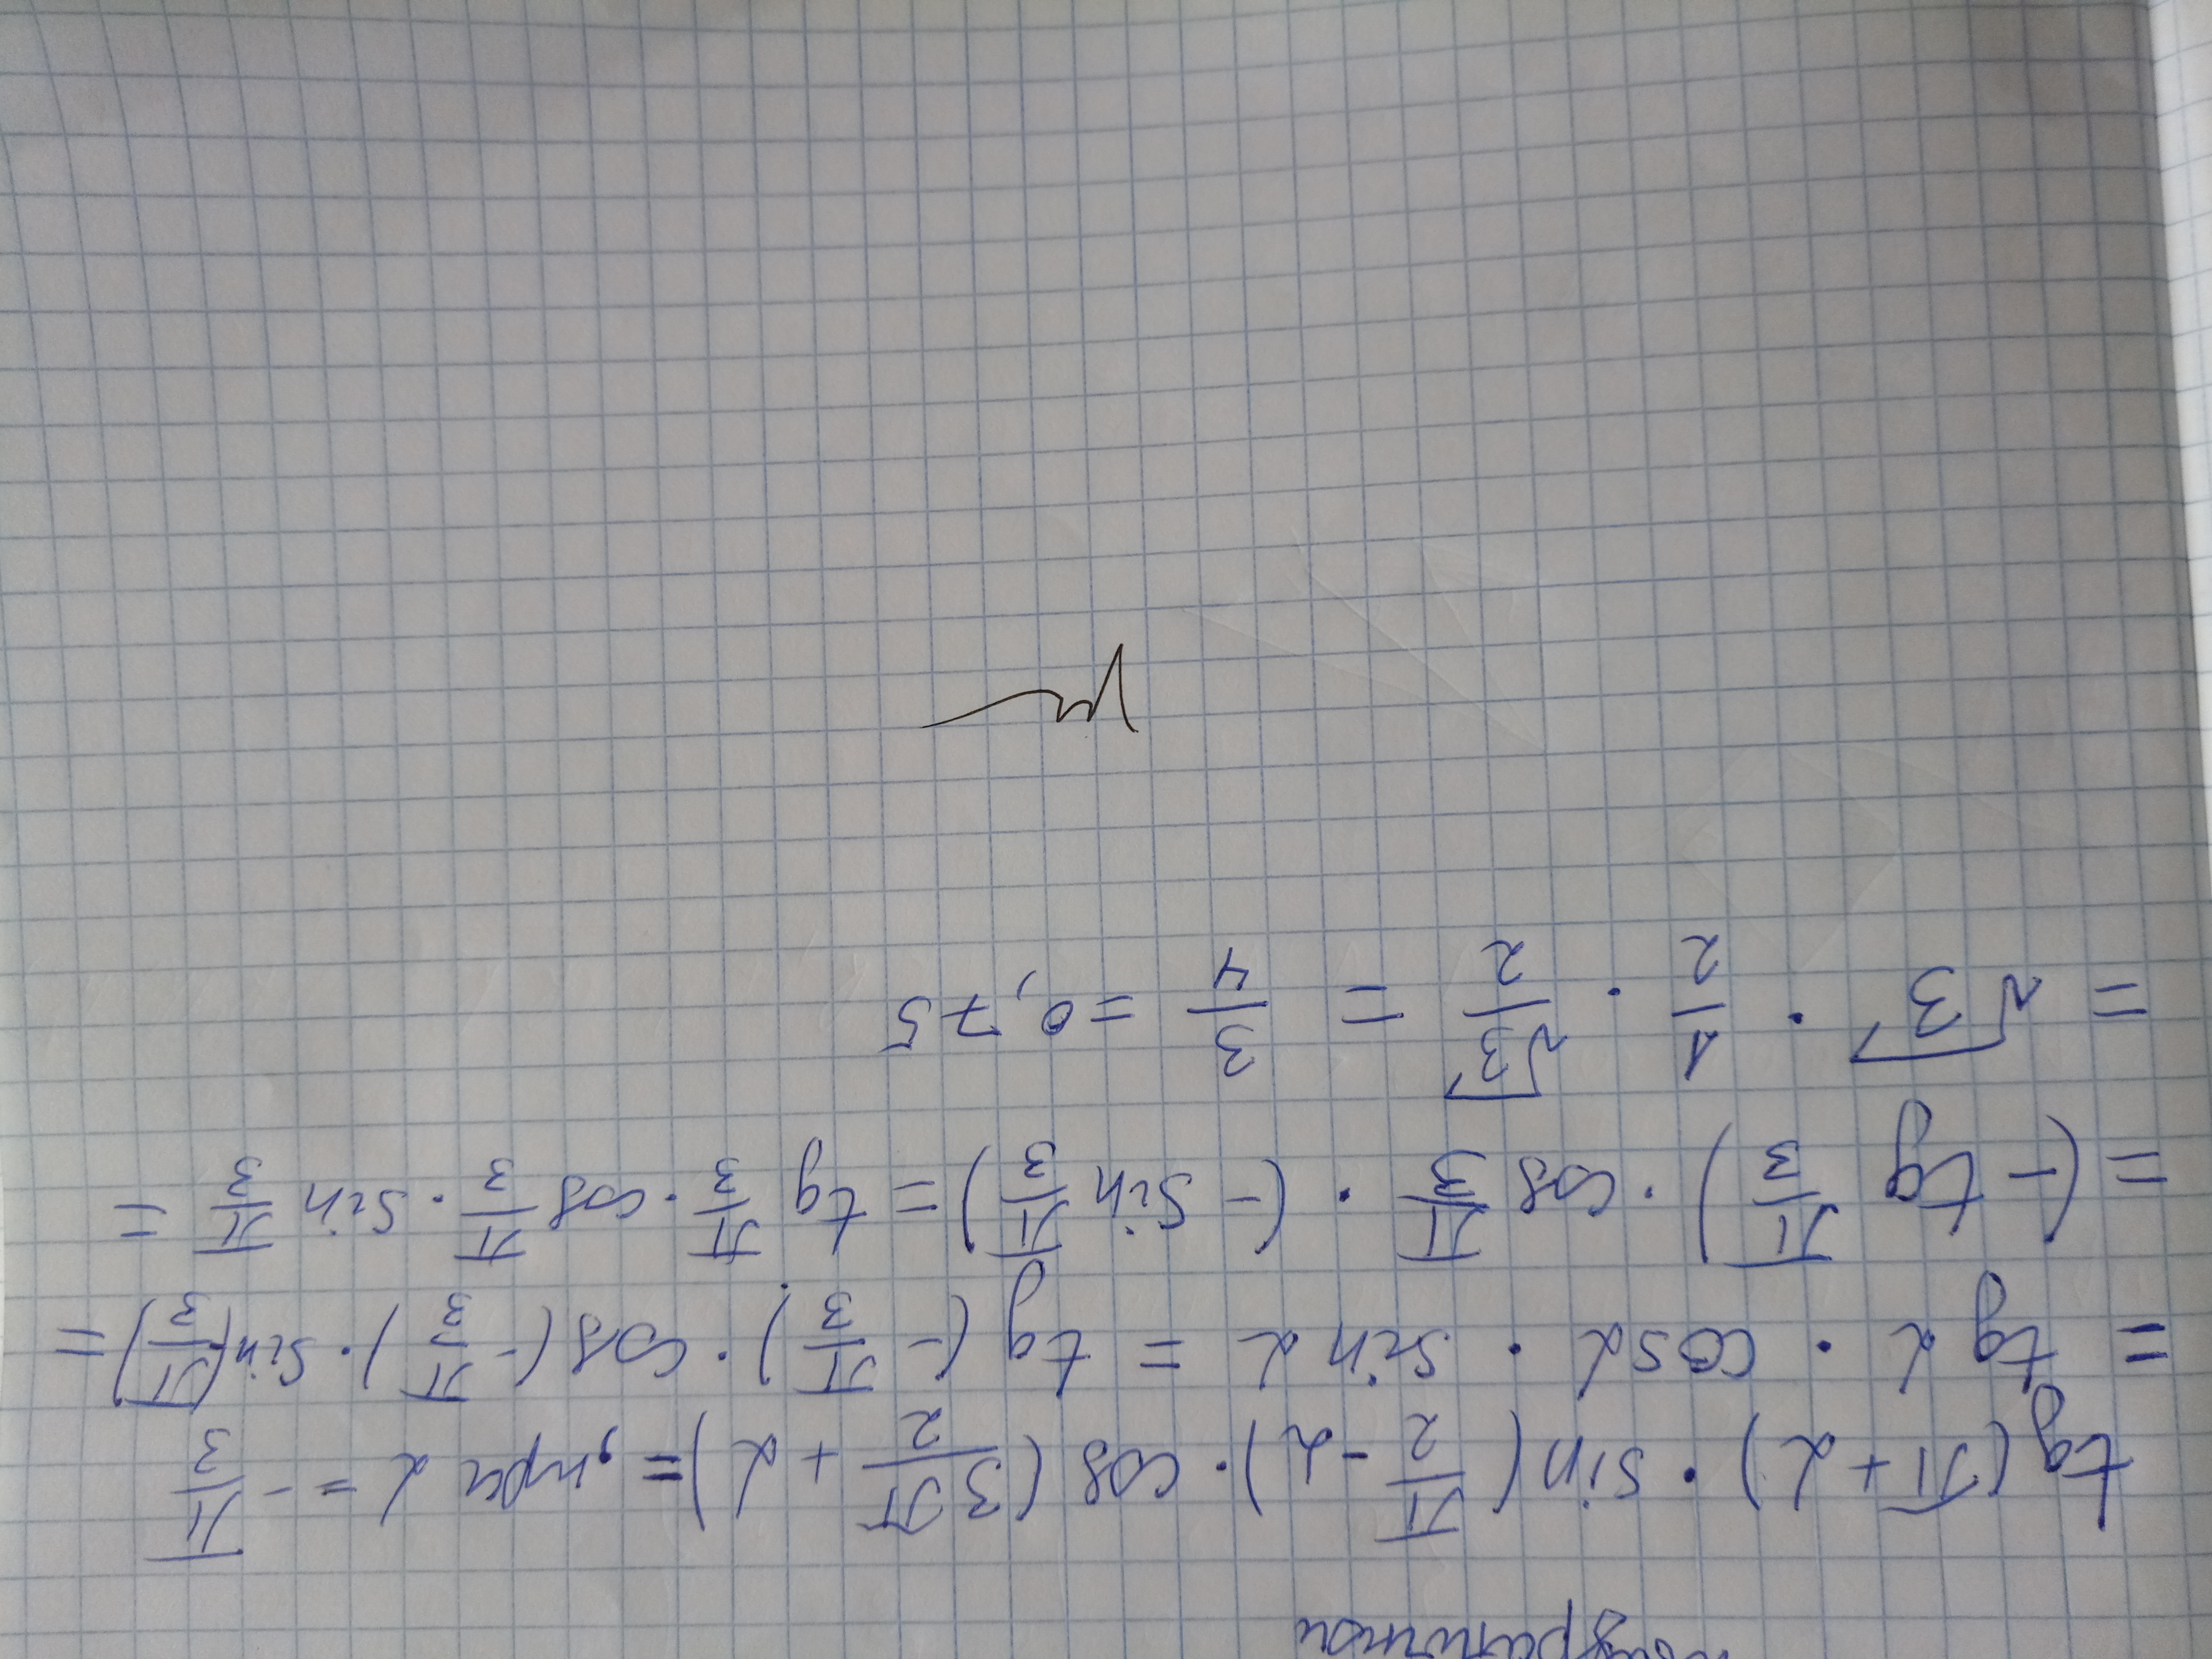 tg(π+α)·sin(π/2-α)·cos(3π/2+α)=, при α=-π/3
=tgα·cosα·sinα=tg(-π/3)·cos(-π/3)·sin(π/3)=
=(-tg π/3)·cos π/3·(-sin π/3)=tg π/3·cos π/3·sin π/3=
=√3·1/2·√3/2=3/4=0,75